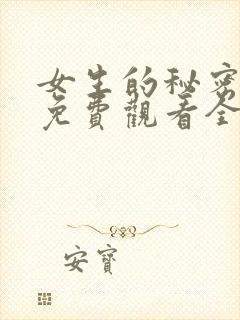 女生的秘密
免費觀看全
安寶